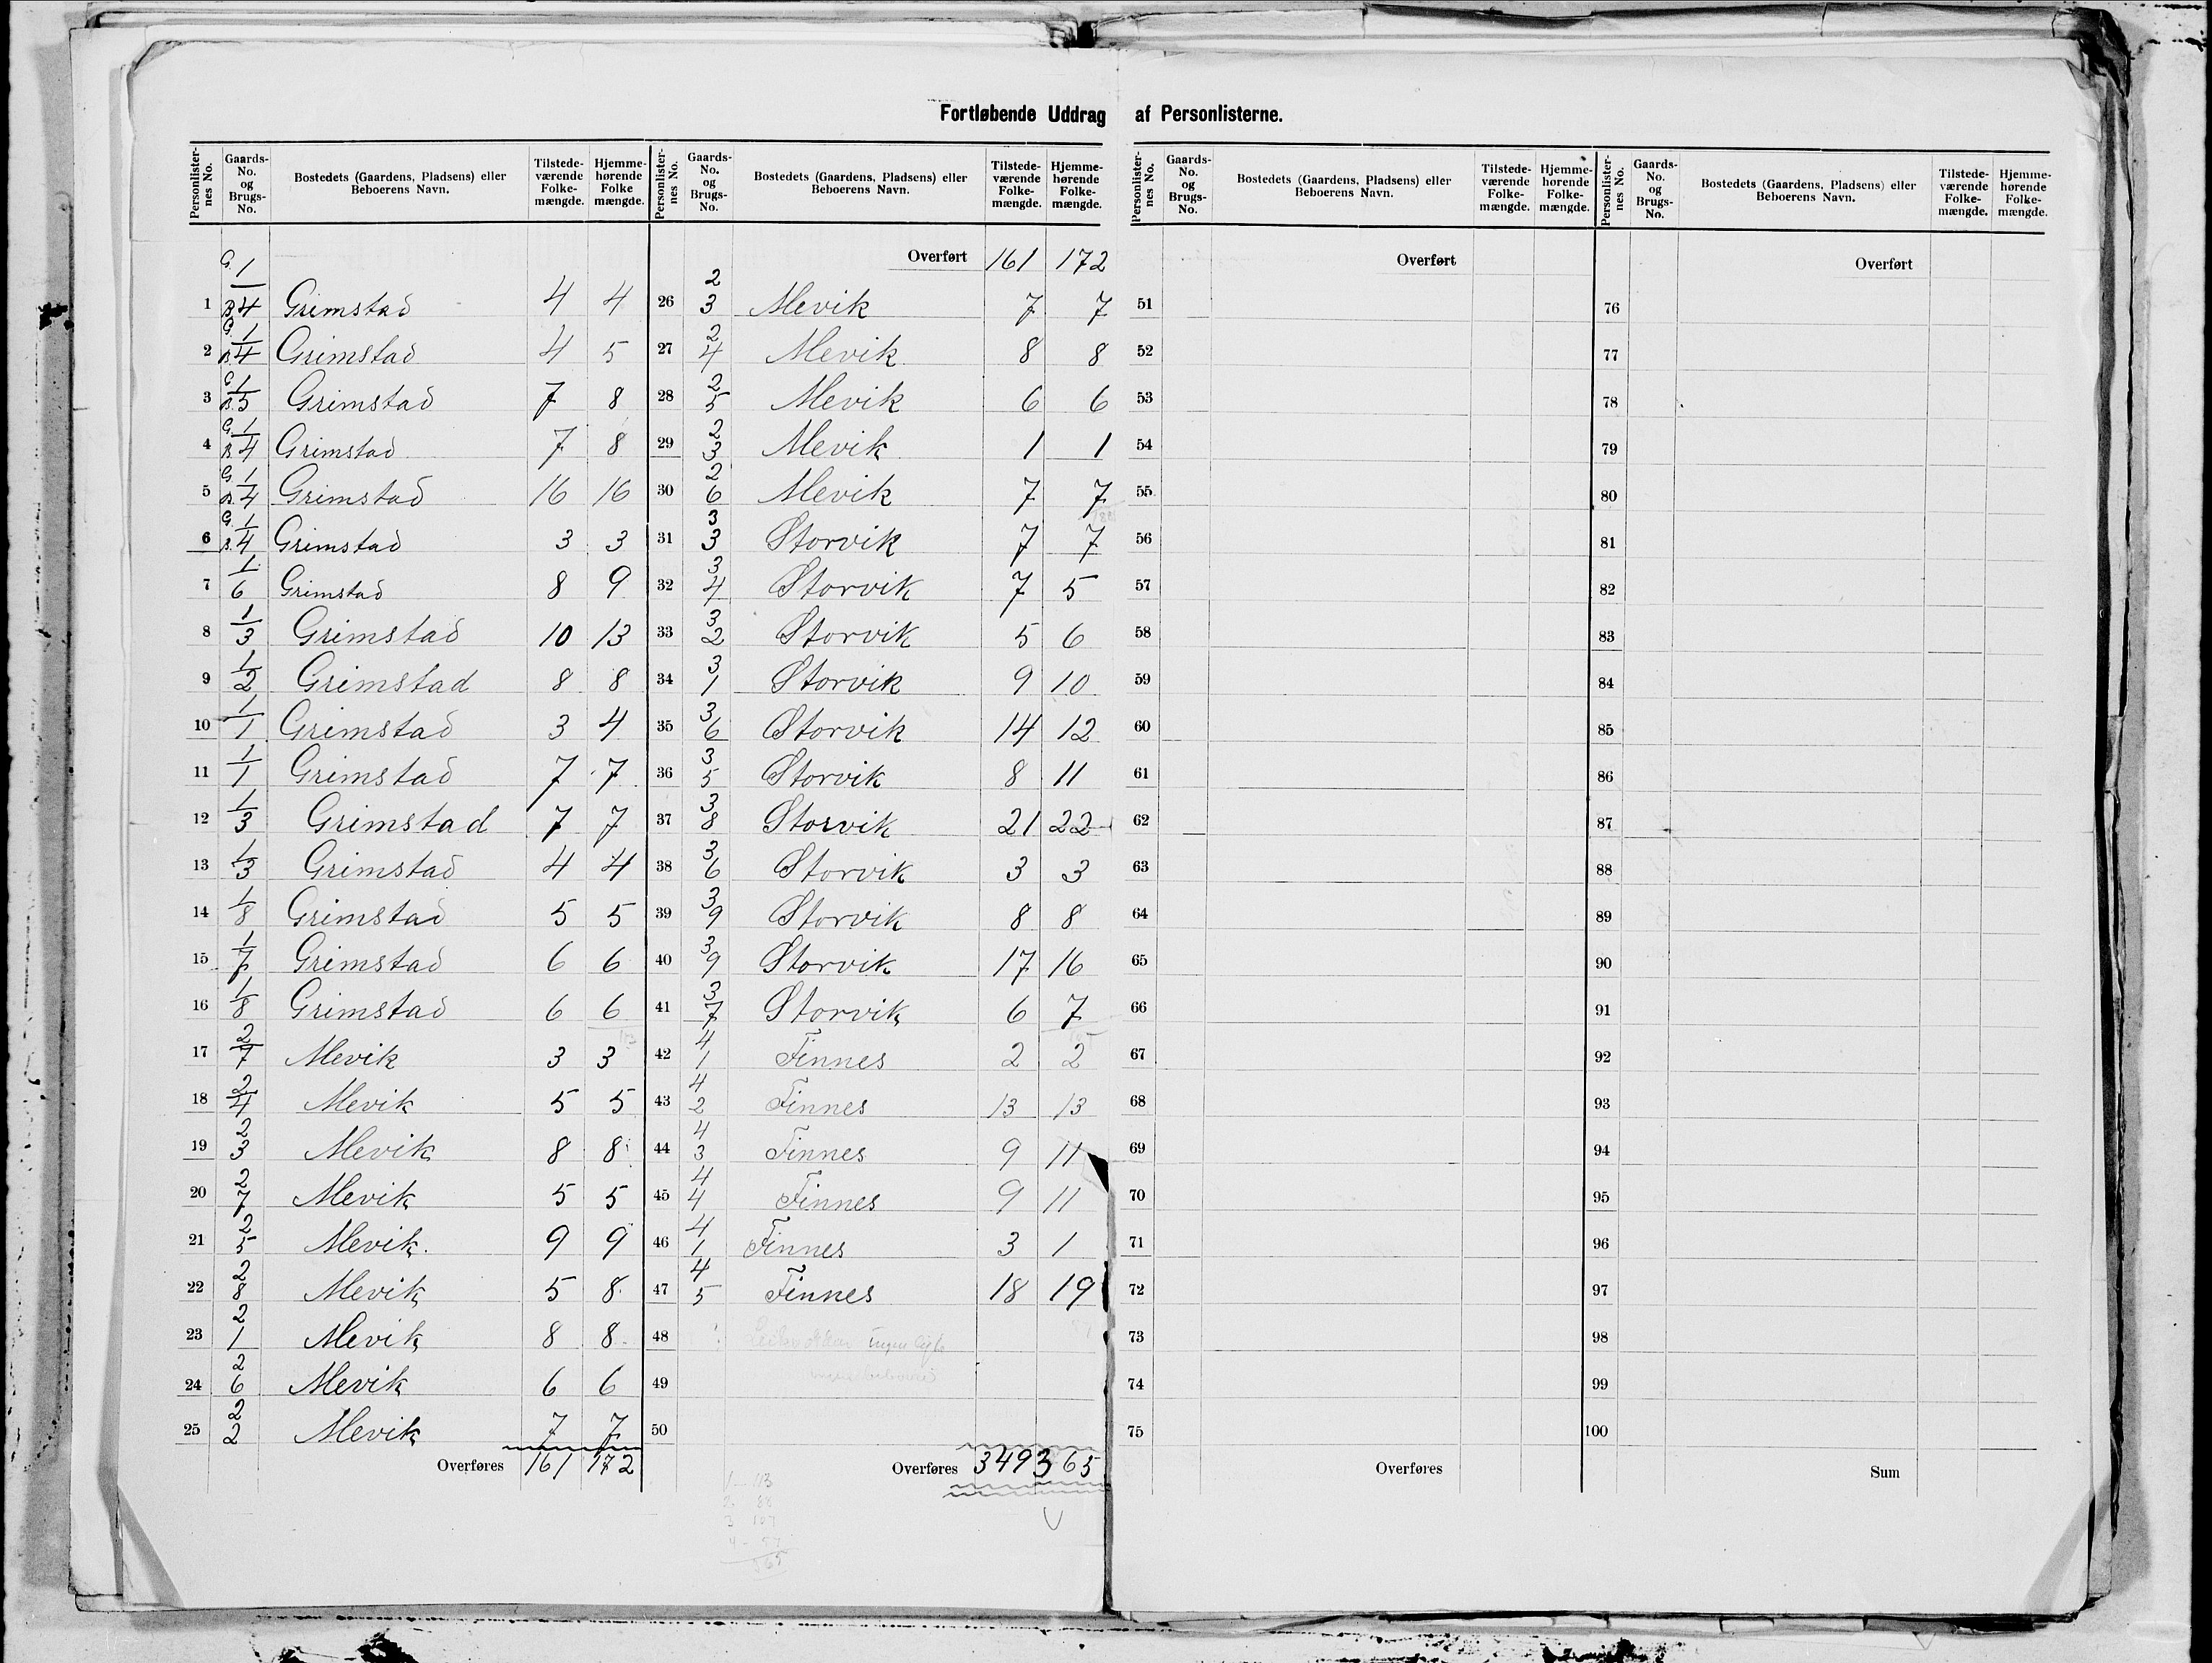 Fortløbende Uddrag af Personlisterne.
Personlister-nes No. | Gaards-No. og Brugs-No. | Bostedets (Gaardens, Pladsens) eller Beboerens Navn. | Tilstede-værende Folke-mængde. | Hjemme-hørende Folke mængde.
1 G. 1 B. 4 Grimstad 4 4
2 G. 1 B. 4 Grimstad 4 5
3 G. 1 B. 5 Grimstad 7 8
4 G. 1 B. 4 Grimstad 7 8
5 G. 1 B. 4 Grimstad 16 16
6 G. 1 B. 4 Grimstad 3 3
7 1/6 Grimstad 8 9
8 1/3 Grimstad 10 13
9 1/2 Grimstad 8 8
10 1/1 Grimstad 3 4
11 1/1 Grimstad 7 7
12 1/3 Grimstad 7 7
13 1/3 Grimstad 4 4
14 1/8 Grimstad 5 5
15 1/7 Grimstad 6 6
16 1/8 Grimstad 6 6
113
17 2/7 Mevik 3 3
18 2/4 Mevik 5 5
19 2/3 Mevik 8 8
20 2/7 Mevik 5 5
21 2/5 Mevik. 9 9
22 2/8 Mevik 5 8
23 2/1 Mevik 8 8
24 2/6 Mevik 6 6
25 2/2 Mevik 7 7
Overføres 161 172
Personlister-nes No. | Gaards-No. og Brugs-No. | Bostedets (Gaardens, Pladsens) eller Beboerens Navn. | Tilstede-værende Folke-mængde. | Hjemme-hørende Folke-mængde.
Overført 161 172
26 2/3 Mevik 7 7
27 2/4 Mevik 8 8
28 2/5 Mevik 6 6
29 2/3 Mevik 1 1
30 2/6 Mevik 7 7
31 3/3 Storvik 7 7
32 3/4 Storvik 7 5
33 3/2 Storvik 5 6
34 3/1 Storvik 9 10
35 3/6 Storvik 14 12
36 3/5 Storvik 8 11
37 3/8 Storvik 21 22
38 3/6 Storvik 3 3
39 3/9 Storvik 8 8
40 3/9 Storvik 17 16
41 3/7 Storvik 6 7
42 4/1 Finnes 2 2
43 4/2 Finnes 13 13
44 4/3 Finnes 9 11
45 4/4 Finnes 9 11
46 4/1 Finnes 3 1
47 4/5 Finnes 18 19
48
49
50
Overføres 349 365
1 - 113
2 - 88
3 107
4 - 57
365
Personlister-nes No. | Gaards-No. og Brugs-No. | Bostedets (Gaardens, Pladsens) eller Beboerens Navn. | Tilstede-værende Folke-mængde. | Hjemme-hørende Folke-mængde.
Overført
51
52
53
54
55
56
57
58
59
60
61
62
63
64
65
66
67
68
69
70
71
72
73
74
75
Overføres
Personlister-nes No. | Gaards-No. og Brugs-No. | Bostedets (Gaardens, Pladsens) eller Beboerens Navn. | Tilstede-værende Folke-mængde. | Hjemme-hørende Folke-mængde.
Overført
76
77
78
79
80
81
82
83
84
85
86
87
88
89
90
91
92
93
94
95
96
97
98
99
100
Sum